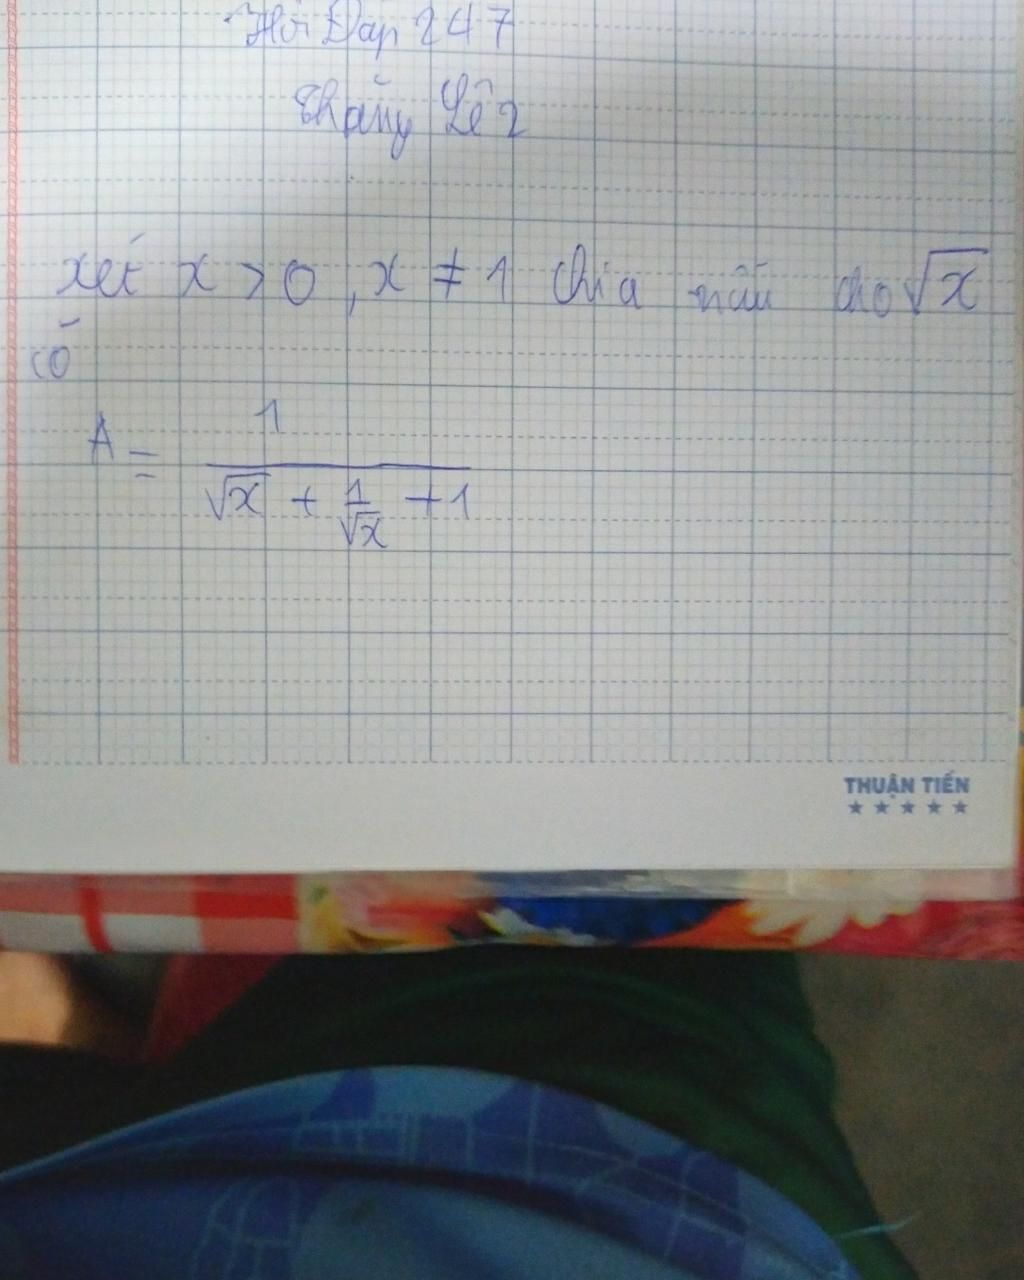 Hỏi Đáp 247
Thắng Lê 2
xét x > 0, x ≠ 1 chia mẫu cho √x
có
A = 1 / (√x + 1/√x + 1)
THUẬN TIẾN
★ ★ ★ ★ ★